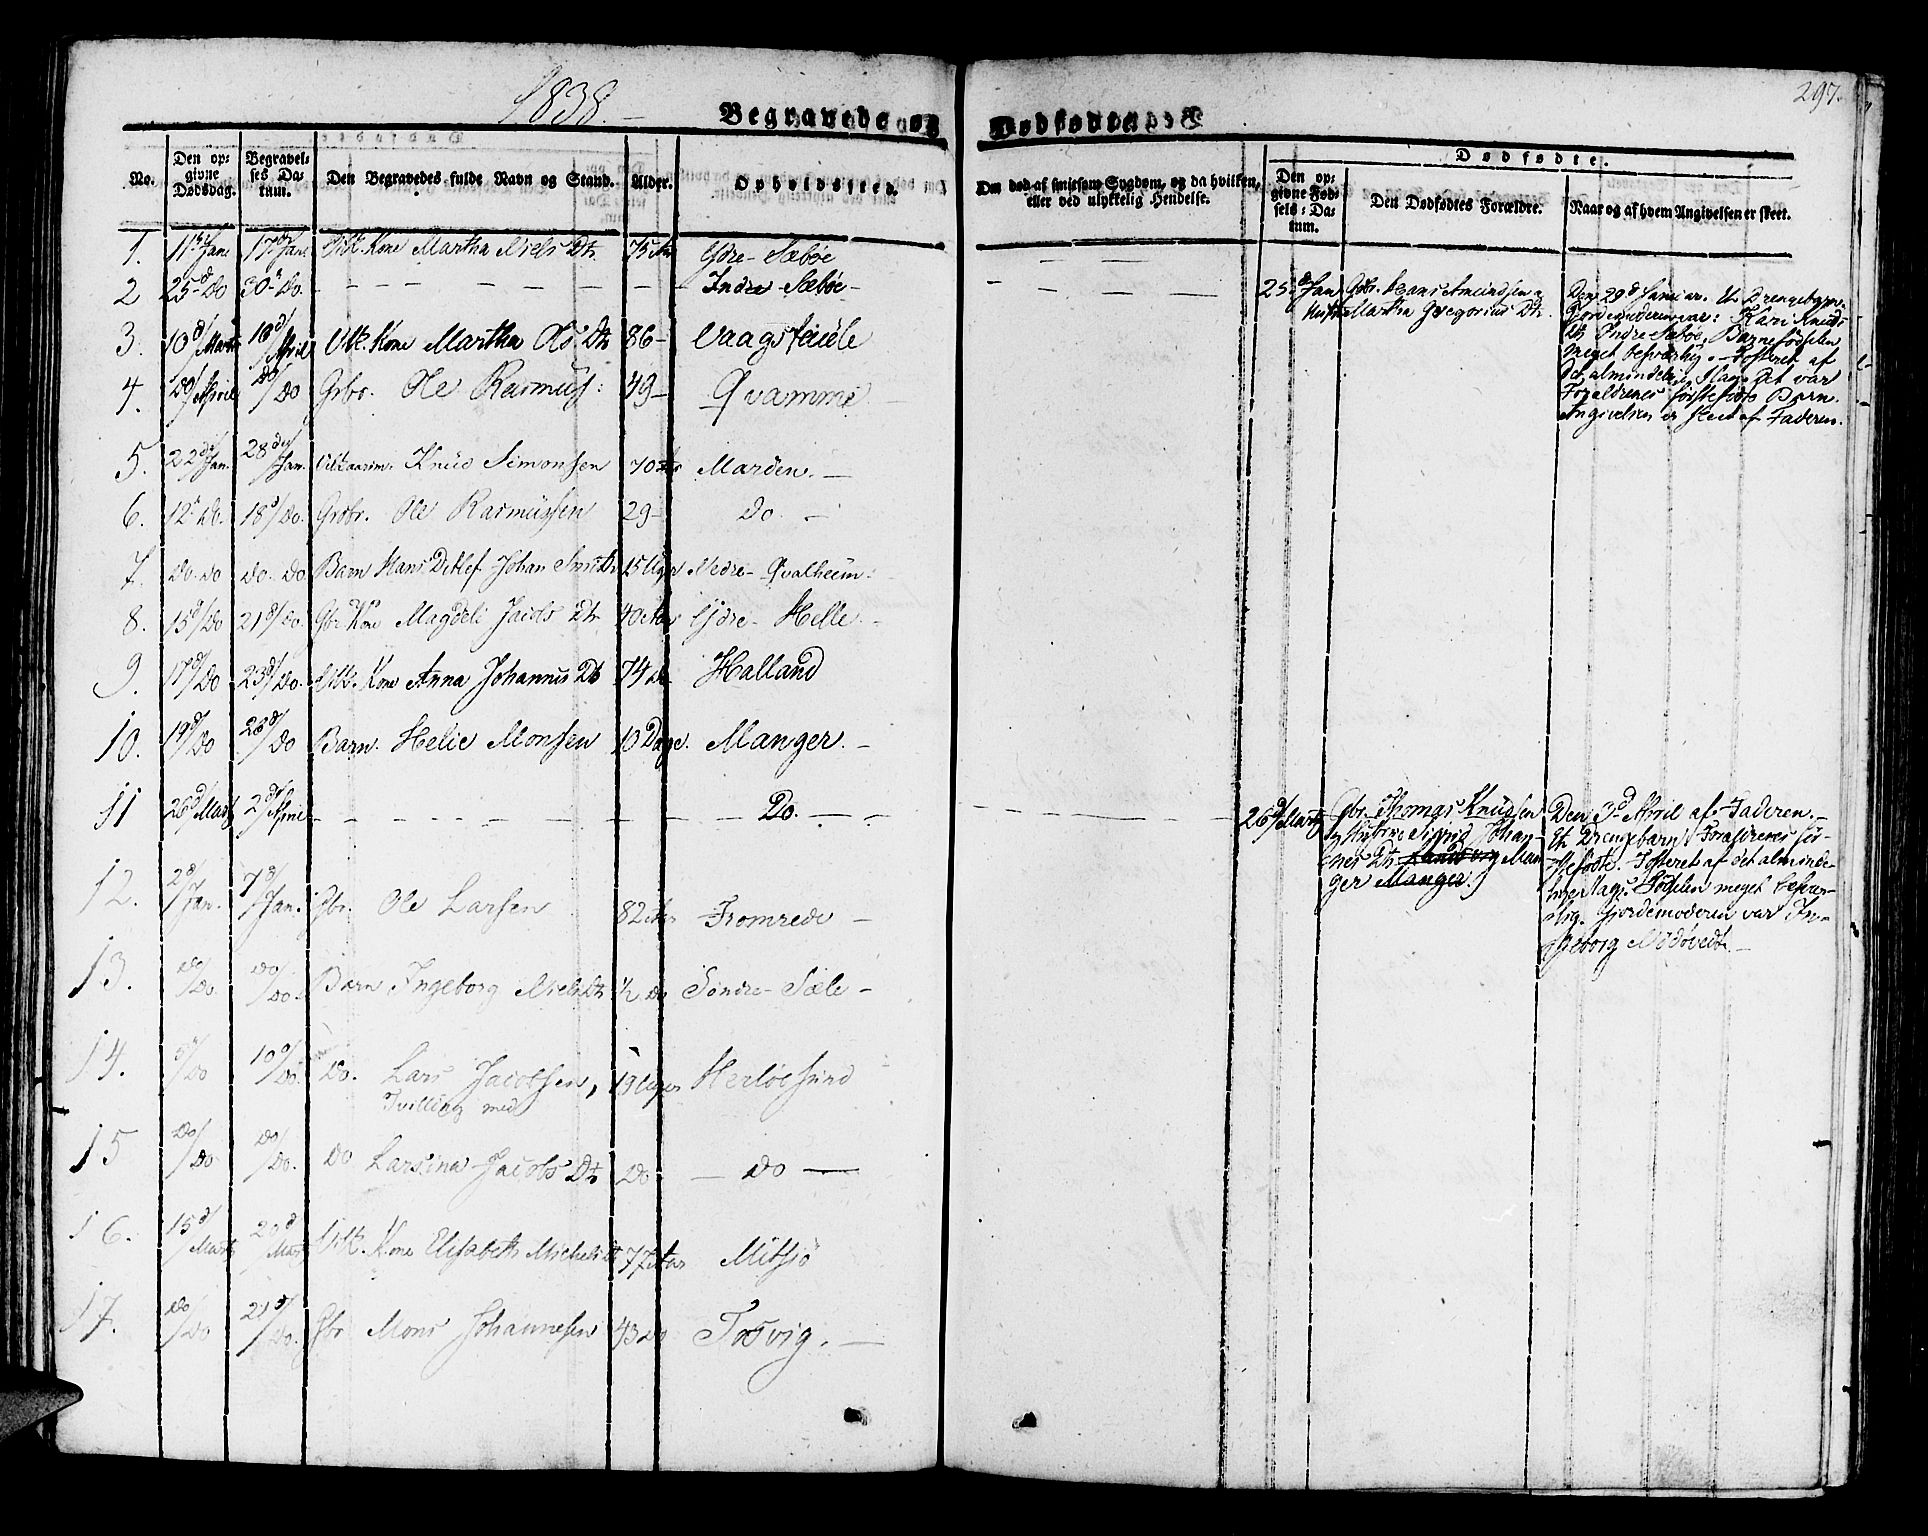 1838.
Begravede og Dødfødte.
297.
No.
Den opgivne Dødsdag.
Begravelses Datum.
Den Begravedes fulde Navn og Stand.
Alder.
Opholdssted.
Om død af smitsom Sygdom, og da hvilken, eller ved ulykkelig Hendelse.
Dødfødte.
Den opgivne Fødsels-Datum.
Den Dødfødtes Forældre.
Naar og af hvem Angivelsen er skeet.
1. 11te Jan. 17d Jan. Vilk. Kone Martha Niels Dtr 75 Aar Ydre-Sæbøe
2 25d Do 30d Do. - - - - Indre Sæbøe -
25d Jan. Gbr. Hans Amundsen og Hustru Martha Gregorius Dtr.
Den 29d Januar. Et Drengebarn.
Gjordemoderen var: Kari Knuds
Dtr Indre Sæbøe. Barnefødselen
meget besværlig. - Fosteret af
det almindelig Slag. Det var
Forældrenes førstefødte Barn.
Angivelsen er skeet af Faderen.
3. 10d/Marts 16d/April Vilk. Kone Martha Ols Dtr 86 -
4. Do/April Do/Do Grbr. Ole Rasmus: 49 - Qvamme -
5. 22d/Jan. 28d/Jan. Knud Simonsen 70 Aar Marøen. -
6. 12d Do. 18d/Do. Grbr. Ole Rasmussen 29 - Do. -
7. Do. Do Do. Do Barn Hans Detlef Johan Smith 15 Uger Nedre-Qvalheim.
8. 15d/Do 21d/Do. Gbr. Kone Magdeli Jacobs Dtr 40 Aar Ydre-Helle. -
9. 17d/Do 23d/Do. Vilk. Kone Anna Johannes Dt 74 Do Halland
10. 19d/Do 28d/Do Barn. Helie Monsen 10 Dage. Manger. -
11 26d/Marts 2d/April - - - - Do. - -
26d/Marts Gbr. Thomas Knudsen
og Hustrue Sigrid Johan-
nes Dtr Man-
ger Manger.)
Den 3d April af Faderen. -
Et Drengebarn. Forældrenes før-
stefødte. Fosteret af det alminde-
lige Slags. Fødselen meget besvær-
lig. Gjordemoderen var In-
geborg
12. 2d/Jan. 7d/Jan. Gbr. Ole Larsen 82 Aar Fromrede -
13. Do/Do. Do/Do. Barn Ingeborg Niels Dtr 1/2 Do Søndre-Sæle -
14. 5d/Do 10d/Do. Do. Lars Jacobsen, 19 Uger Herløesund
Tvilling med
15 Do/Do Do/Do. Do Larsina Jacobs Dtr Do - Do -
16. 15d/Marts 20d/Marts Vilk. Kone Elisabeth Michels Dt 77 Aar Mitsjö
17. Do/Do 21d/Do. Gbr Mons Johannesen 43 Do Tosvig. -